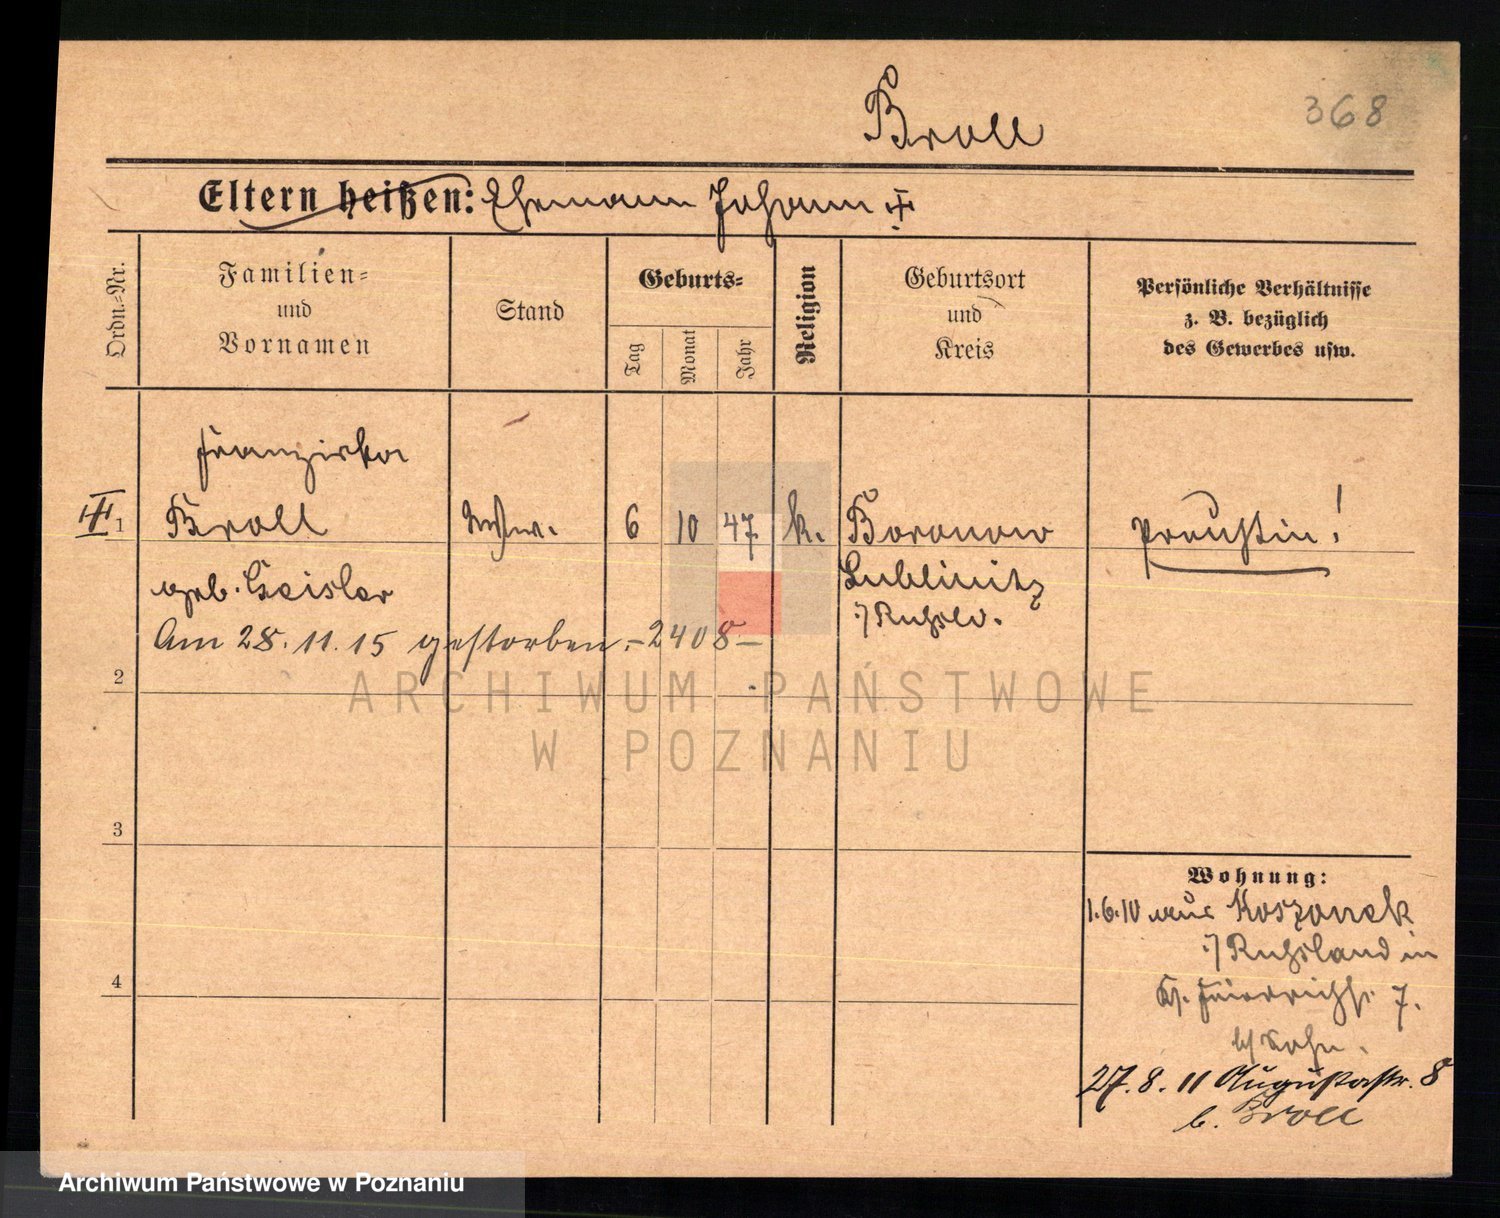 368
Broll
Eltern heißen: Ehemann Johann
Ordn.=Nr.
Familien=
und
Vornamen
Stand
Geburts=
Tag
Monat
Jahr
Religion
Geburtsort
und
Kreis
Persönliche Verhältnisse
z. B. bezüglich
des Gewerbes usw.
Franziska
1 Broll Wwe. 6 10 47 k. Boronow Preußin!
geb. Geisler Lublinitz
Am 28. 11. 15 gestorben. -2408-
2
3
4
Wohnung:
1.6.10 aus Koszanek
Rußland in
7.
b/ Sohn.
27. 8. 11 Augustastr. 8
b. Broll
ARCHIWUM PAŃSTWOWE
W POZNANIU
Archiwum Państwowe w Poznaniu